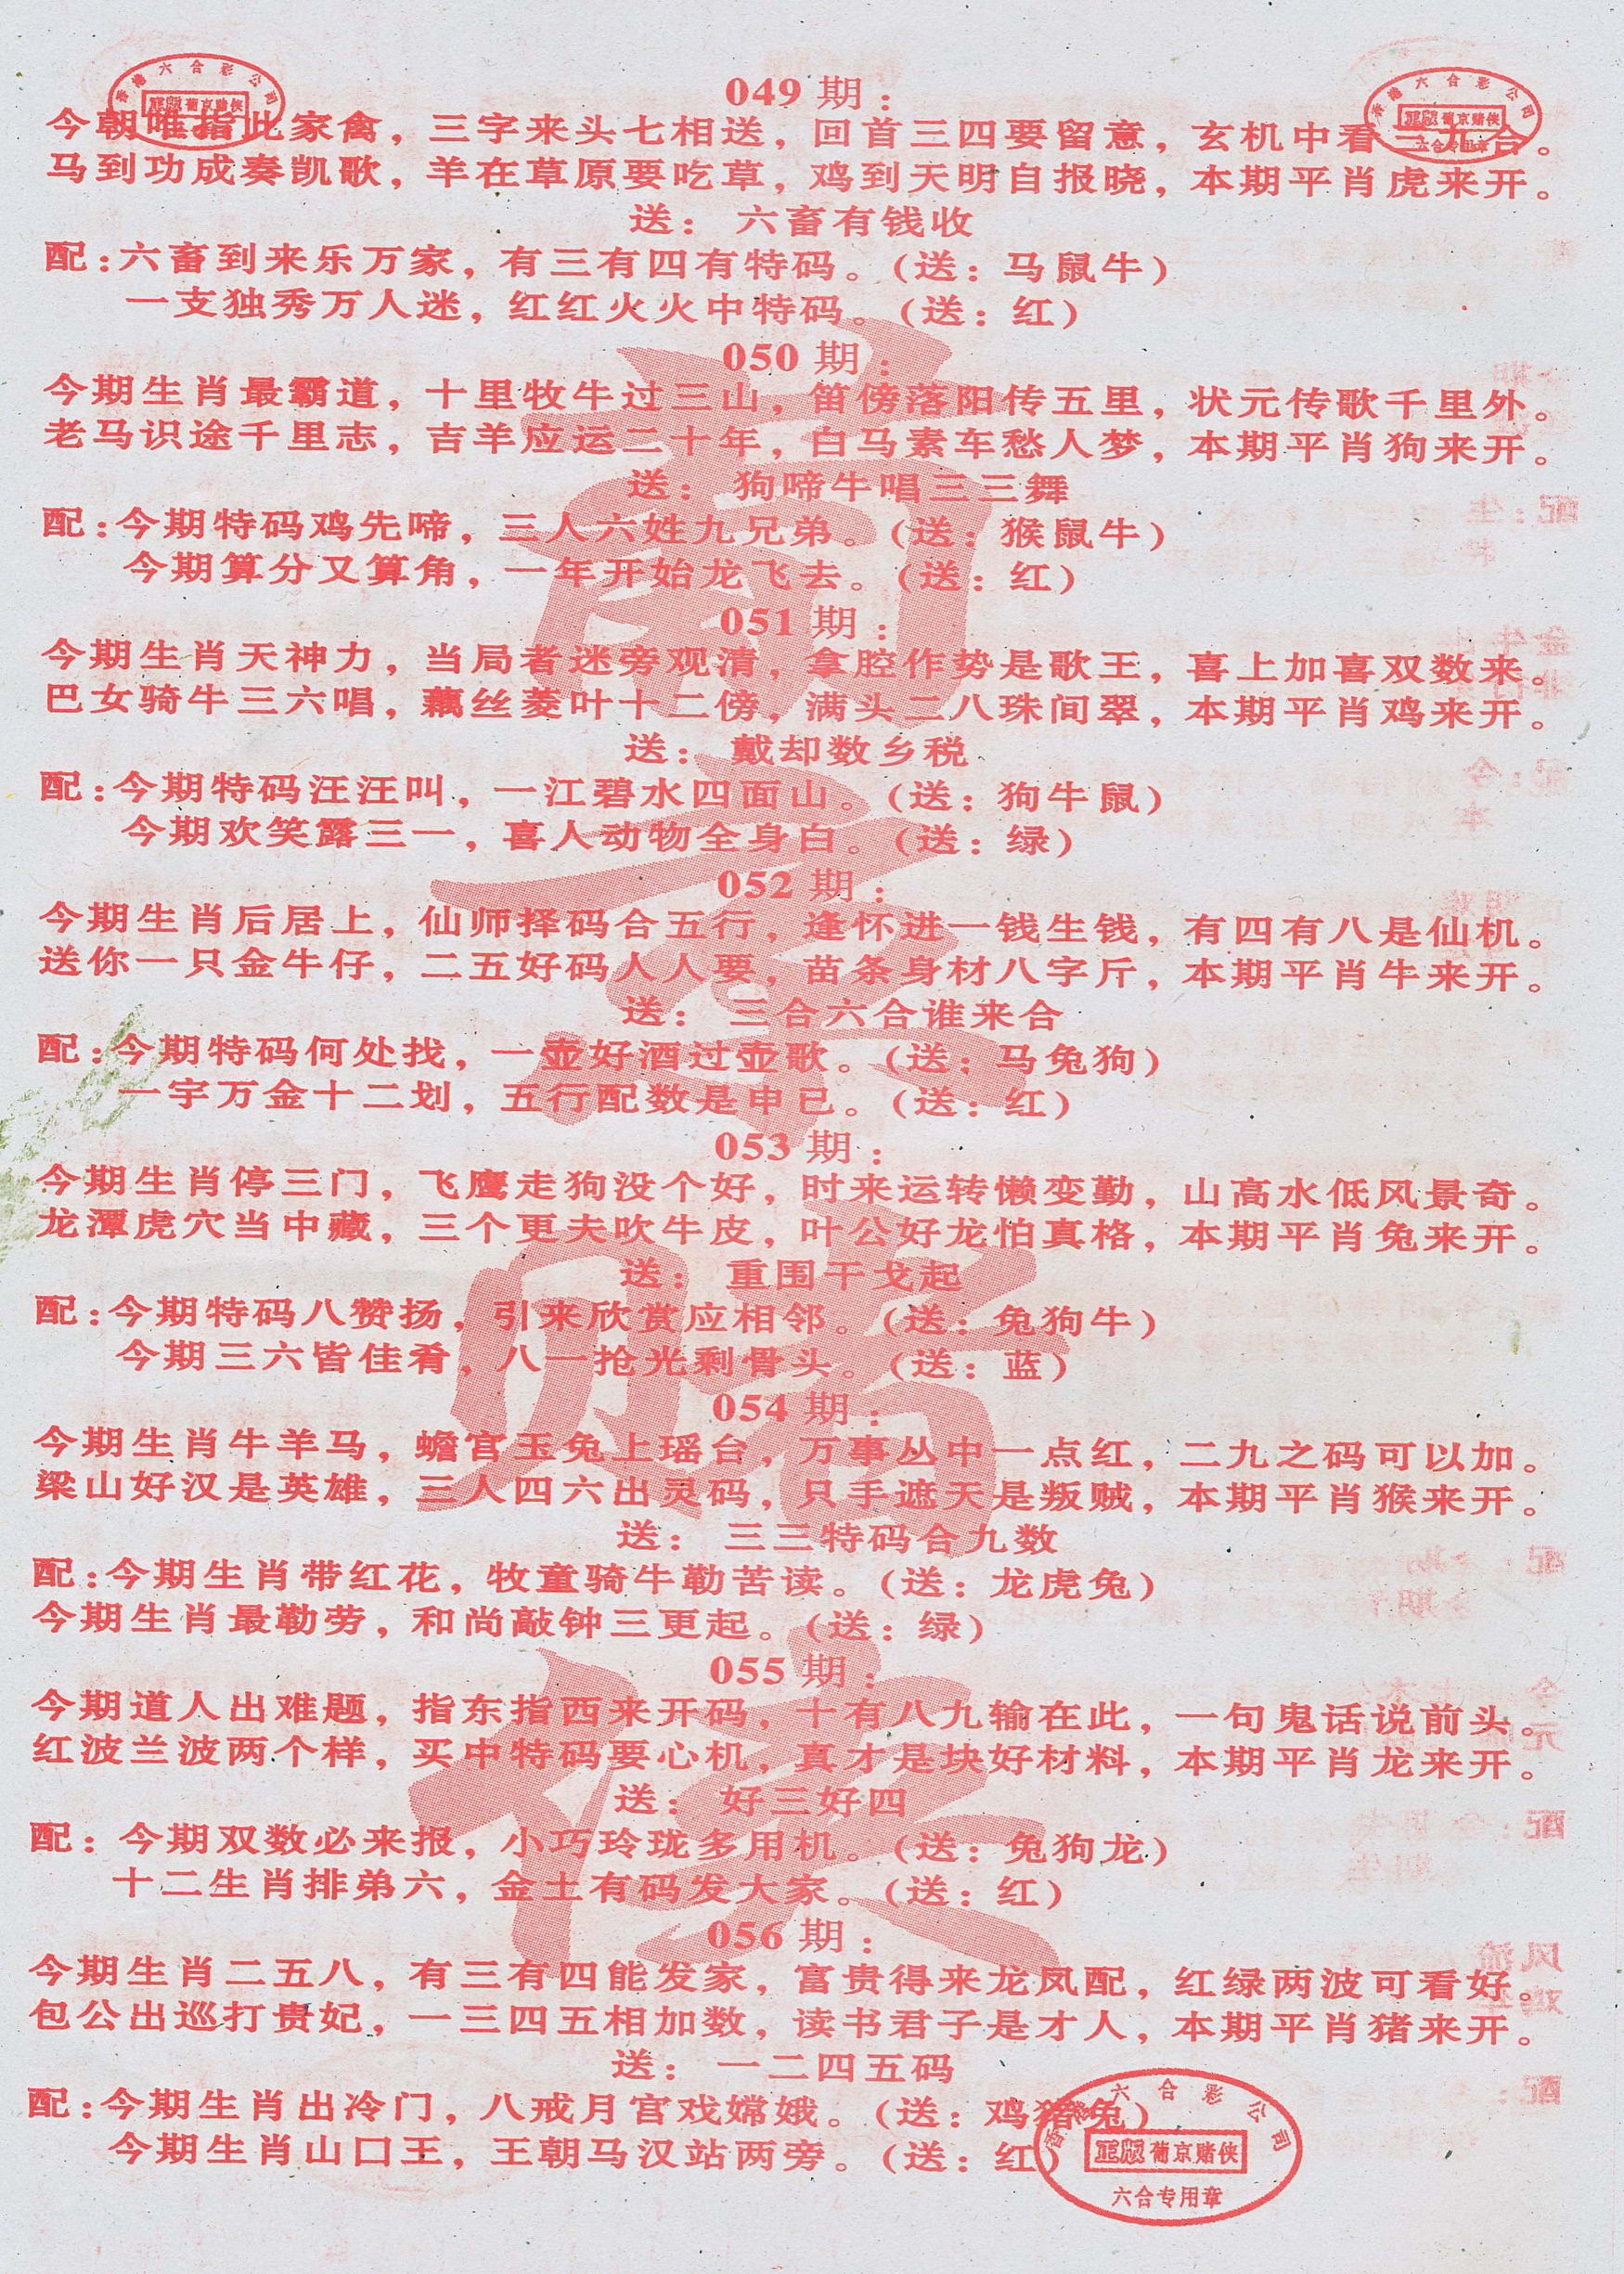 香港六合彩公司
正版 葡京赌侠
香港六合彩公司
正版 葡京赌侠
六合专用章
049 期：
今朝唯指此家禽，三字来头七相送，回首三四要留意，玄机中看二九合。
马到功成奏凯歌，羊在草原要吃草，鸡到天明自报晓，本期平肖虎来开。
送： 六畜有钱收
配：六畜到来乐万家，有三有四有特码。（送：马鼠牛）
一支独秀万人迷，红红火火中特码。（送：红）
050 期：
今期生肖最霸道，十里牧牛过三山，笛傍落阳传五里，状元传歌千里外。
老马识途千里志，吉羊应运二十年，白马素车愁人梦，本期平肖狗来开。
送： 狗啼牛唱三三舞
配：今期特码鸡先啼，三人六姓九兄弟。（送：猴鼠牛）
今期算分又算角，一年开始龙飞去。（送：红）
051 期：
今期生肖天神力，当局者迷旁观清，拿腔作势是歌王，喜上加喜双数来。
巴女骑牛三六唱，藕丝菱叶十二傍，满头二八珠间翠，本期平肖鸡来开。
送： 戴却数乡税
配：今期特码汪汪叫，一江碧水四面山。（送：狗牛鼠）
今期欢笑露三一，喜人动物全身白。（送：绿）
052 期：
今期生肖后居上，仙师择码合五行，逢怀进一钱生钱，有四有八是仙机。
送你一只金牛仔，二五好码人人要，苗条身材八字斤，本期平肖牛来开。
送： 三合六合谁来合
配：今期特码何处找，一壶好酒过壶歌。（送：马兔狗）
一宇万金十二划，五行配数是申已。（送：红）
053 期：
今期生肖停三门，飞鹰走狗没个好，时来运转懒变勤，山高水低风景奇。
龙潭虎穴当中藏，三个更夫吹牛皮，叶公好龙怕真格，本期平肖兔来开。
送： 重围干戈起
配：今期特码八赞扬，引来欣赏应相邻。（送：兔狗牛）
今期三六皆佳肴，八一抢光剩骨头。（送：蓝）
054 期：
今期生肖牛羊马，蟾宫玉兔上瑶台，万事丛中一点红，二九之码可以加。
梁山好汉是英雄，三人四六出灵码，只手遮天是叛贼，本期平肖猴来开。
送： 三三特码合九数
配：今期生肖带红花，牧童骑牛勤苦读。（送：龙虎兔）
今期生肖最勤劳，和尚敲钟三更起。（送：绿）
055 期：
今期道人出难题，指东指西来开码，十有八九输在此，一句鬼话说前头。
红波兰波两个样，买中特码要心机，真才是块好材料，本期平肖龙来开。
送： 好三好四
配：今期双数必来报，小巧玲珑多用机。（送：兔狗龙）
十二生肖排弟六，金土有码发大家。（送：红）
056 期：
今期生肖二五八，有三有四能发家，富贵得来龙凤配，红绿两波可看好。
包公出巡打贵妃，一三四五相加数，读书君子是才人，本期平肖猪来开。
送： 一二四五码
配：今期生肖出冷门，八戒月宫戏嫦娥。（送：鸡猪兔）
今期生肖山口王，王朝马汉站两旁。（送：红）
香港六合彩公司
正版 葡京赌侠
六合专用章